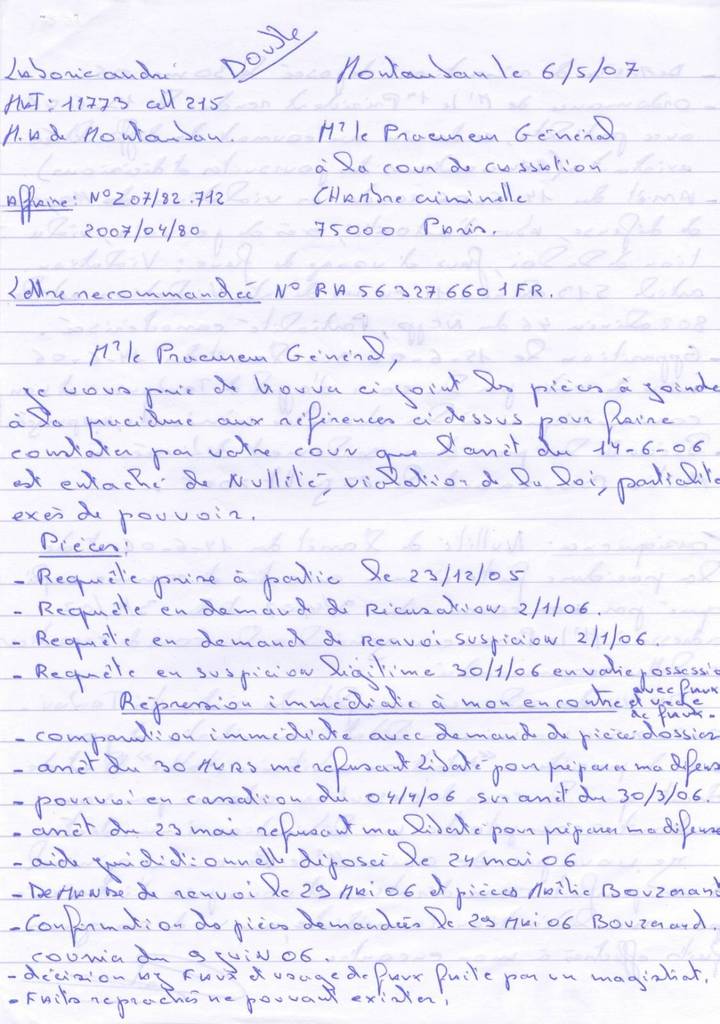 Laborie andré Double Montauban le 6/5/07
N.ET: 11773 cell 215
M.A de Montauban. Mr le Procureur Général
à la cour de cassation
Affaire: N° Z07/82.712 CHAMbre criminelle
2007/04/80 75000 Paris.
Lettre recommandée N° RA 56 327 660 1 FR.
Mr le Procureur Général,
je vous prie de trouver ci joint les pièces à joindre
à la procédure aux références ci dessus pour faire
constater par votre cour que l'arrêt du 14-6-06
est entaché de Nullité, violation de la loi, partialité
exès de pouvoir.
Pièces:
- Requête prise à partie le 23/12/05
- Requête en demande de récusation 2/1/06.
- Requête en demande de renvoi suspicion 2/1/06.
- Requête en suspicion légitime 30/1/06 en votre possessio
Répression immédiate à mon encontre avec faux
et usage
de faux.
- comparution immédiate avec demande de pièces dossier
- arrêt du 30 MARS me refusant liberté pour préparer ma défense
- pourvoi en cassation du 04/4/06 sur arrêt du 30/3/06.
- arrêt du 23 mai refusant ma liberté pour préparer ma défense
- aide juridictionnelle déposée le 24 mai 06
- DEMANDE de renvoi le 29 MAI 06 et pièces Maître Bouzerand
- Confirmation des pièces demandées le 29 MAI 06 Bouzerand.
courrier du 9 JUIN 06.
- décision Faux et usage de faux faite par un magistrat.
- Faits reprochés ne pouvant exister.